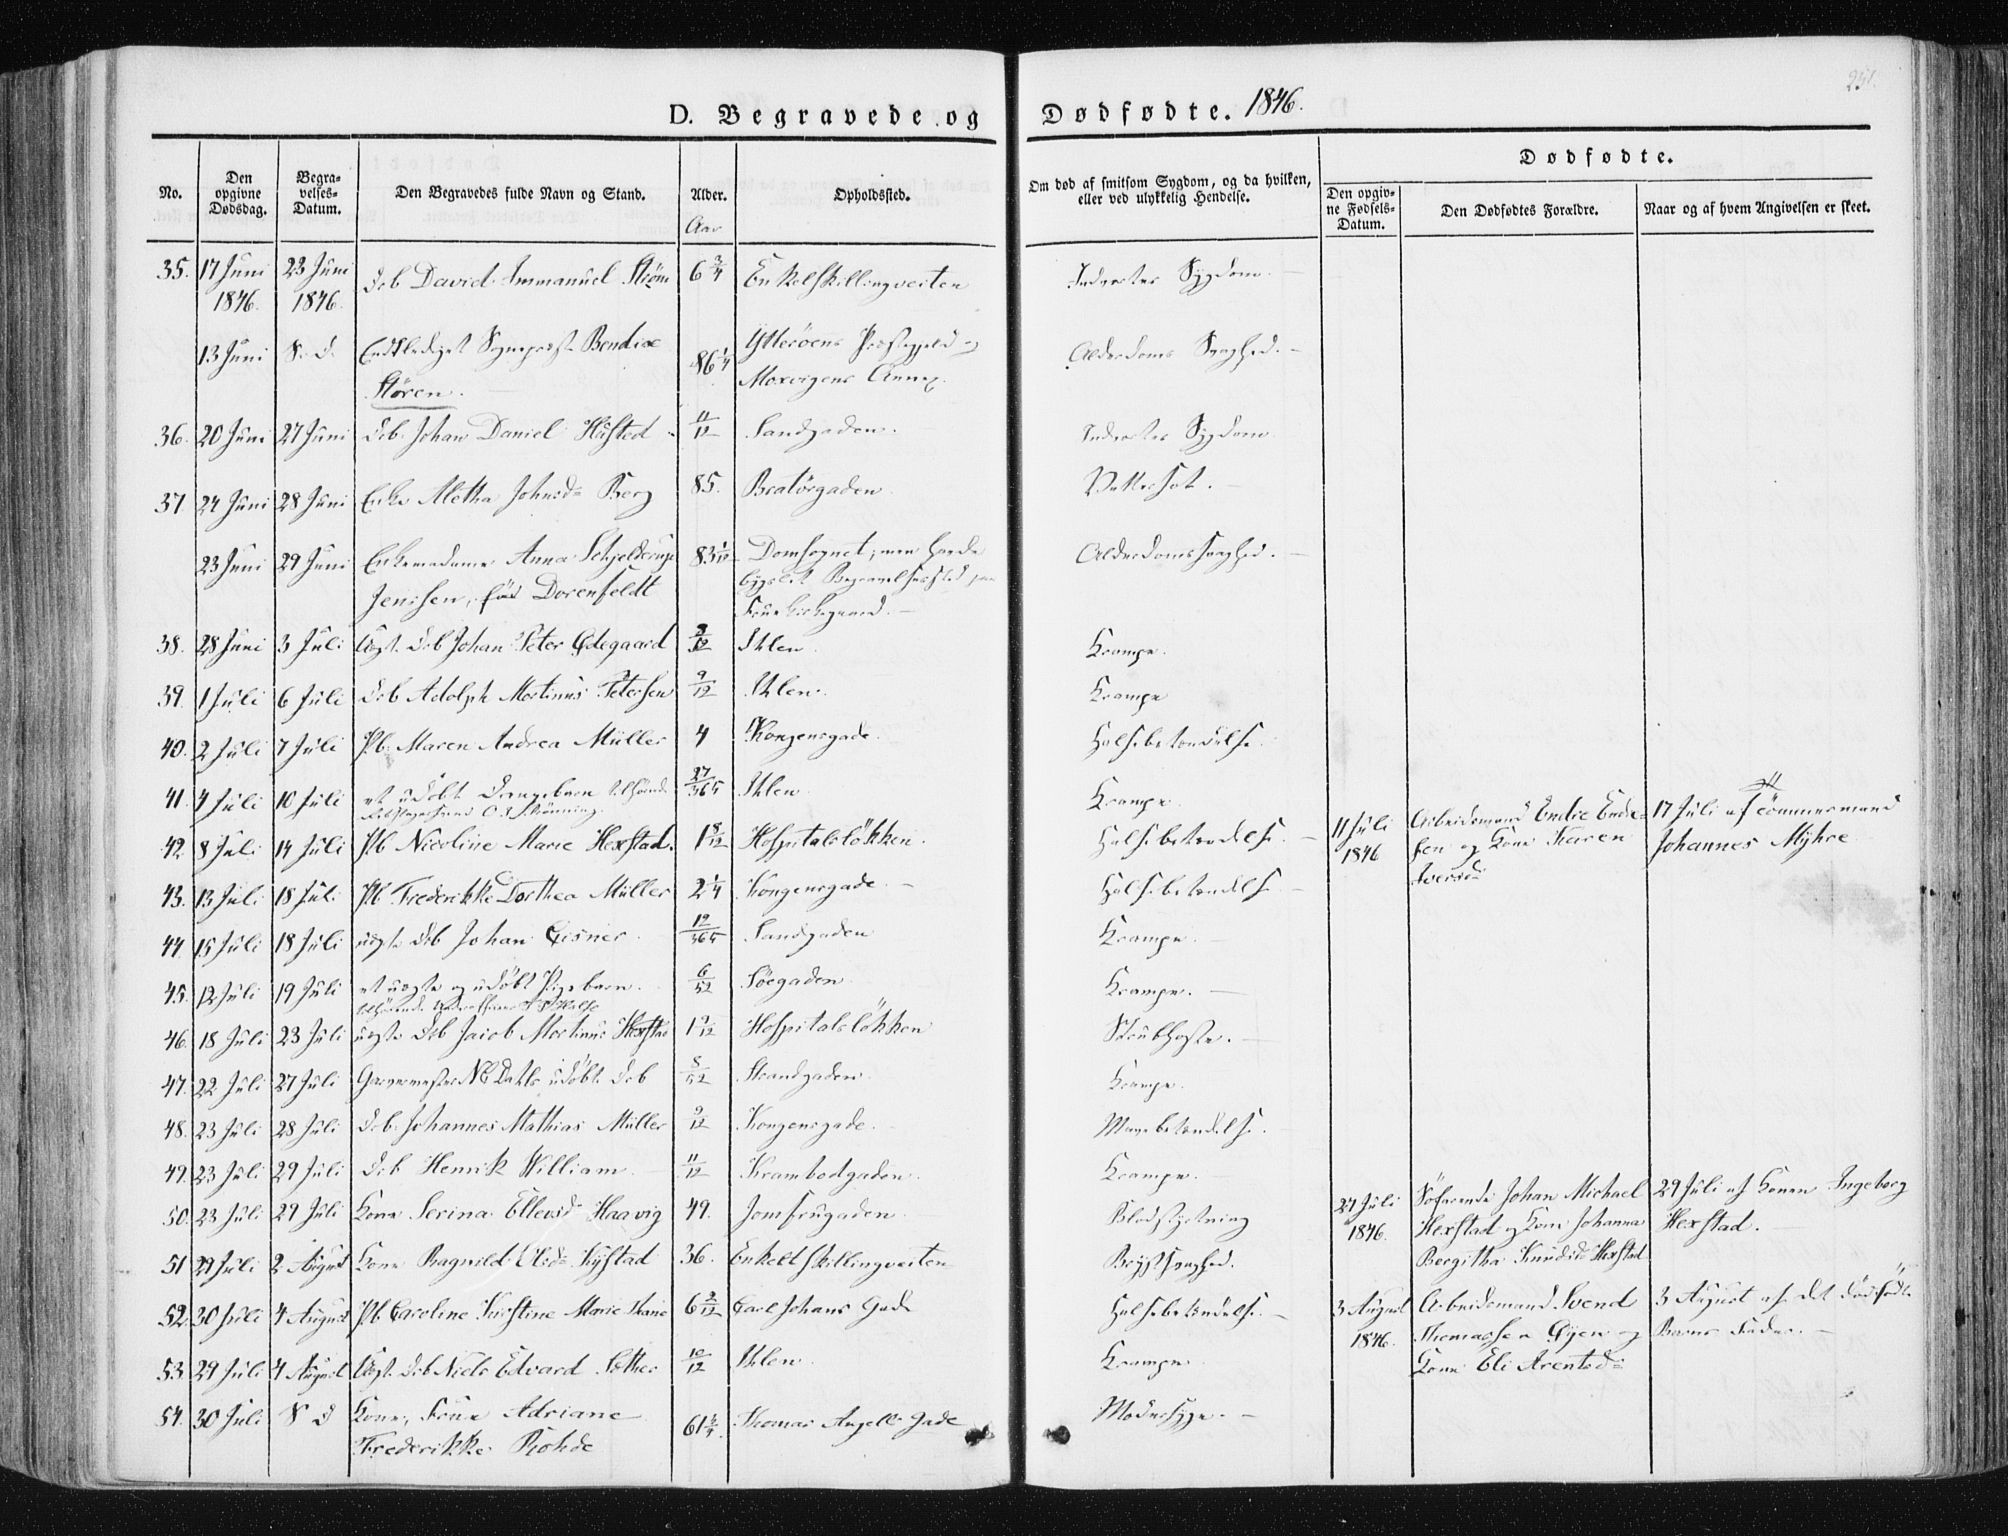 251.
D. Begravede og Dødfødte. 1846.
No.
Den opgivne Dødsdag.
Begra-velses-Datum.
Den Begravedes fulde Navn og Stand.
Alder.
Opholdssted.
Om død af smitsom Sygdom, og da hvilken, eller ved ulykkelig Hendelse.
Dødfødte.
Den opgiv-ne Fødsels-Datum.
Den Dødfødtes Forældre.
Naar og af hvem Angivelsen er skeet.
Aar
35. 17 Juni 1846. 23 Juni 1846. Db David Immanuel Strøm 6 3/4 Enkelskillingveiten Indvortes Sygdom.
13 Juni S. D. Entlediget Sognepræst Bendix Støren. 86 1/4 Ytterøens Præstegjeld og Moxvigens Annex. Alderdoms Svaghed.
36. 20 Juni 27 Juni Db. Johan Daniel Håsted 11/12 Sandgaden. Indvortes Sygdom
37. 24 Juni 28 Juni Enke Aletha Johnsd. Berg 85. Bratørgaden Vattersot.
23 Juni 29 Juni Enkemadame Anna Schjelderup Jenssen, fød Dorenfeldt 83 1/12 Domsognet, men havde Begravelsessted paa Frue Kirkegaard. Alderdomssvaghed.
38. 28 Juni 3 Juli Uægt. Db Johan Peter Ødegaard Ihlen. Krampe.
39. 1 Juli 6 Juli Db Adolph Martinus Petersen 9/12 Ihlen. Krampe
40. 2 Juli 7 Juli Pb. Maren Andrea Müller 4 Kongensgade. Halsbetændelse.
41. 4 Juli 10 Juli et udøbt Drengebarn tilhørende O. Rønning. 27/365 Ihlen Krampe
42. 8 Juli 14 Juli Pb Nicoline Marie Hexstad. 1 8/12 Hospitalsløkken. Halsbetændelse.
11 Juli 1846 Arbeidsmand Endre Endresen og Kone Karen Iversd. 17 Juli af Tømmermand Johannes Myhre
43. 13 Juli 18 Juli Pb Frederikke Dorthea Müller 2 1/4 Kongensgade. Halsbetændelse
44. 15 Juli 18 Juli uægte Db Johan Eisner 12/365 Sandgaden Krampe.
45. 12 Juli 19 Juli et uægte og udøbt Pigebarn. 6/52 Søegaden. Krampe.
46. 18 Juli 23 Juli uægte Db Jacob Martinus Hexstad 1 9/12 Hospitalsløkken Strubhoste.
47. 22 Juli 27 Juli Garvermester Dahls udøbte Db 8/52 Strandgaden. Krampe.
48. 23 Juli 28 Juli Db. Johannes Mathias Müller 9/12 Kongensgade. Mavebetændelse.
49. 23 Juli 29 Juli Db Henrik William 11/12 Krambodgaden. Krampe.
50. 23 Juli 29 Juli Kone Serina Ellevsd Haavig 49. Jomfrugaden. Blodstyrtning
27 Juli 1846. Søfarende Johan Michael Hexstad og Kone Johanna Bergitha Knudsd. Hexstad 29 Juli af Konen Ingeborg Hexstad.
51 29 Juli 2 August Kone Ragnild Olsd. Kystad 36. Enkeltskillingveiten Brystsvaghed.
52. 30 Juli 4 August Pb Caroline Kirstine Marie 6 Carl Johans Gade Halsbetændelse.
3 August 1846. Arbeidsmand Svend Thomassen Øyen og Kone Eli Arentsd. 3 August af det dødfødte Barns Fader.
53. 29 Juli 4 August Uægt. Db Niels Edvard 10/12 Ihlen. Krampe
54. 30 Juli S D Kone, Frue Adriane Frederikke Rohde 61 Thomas Angells Gade Modersyge.